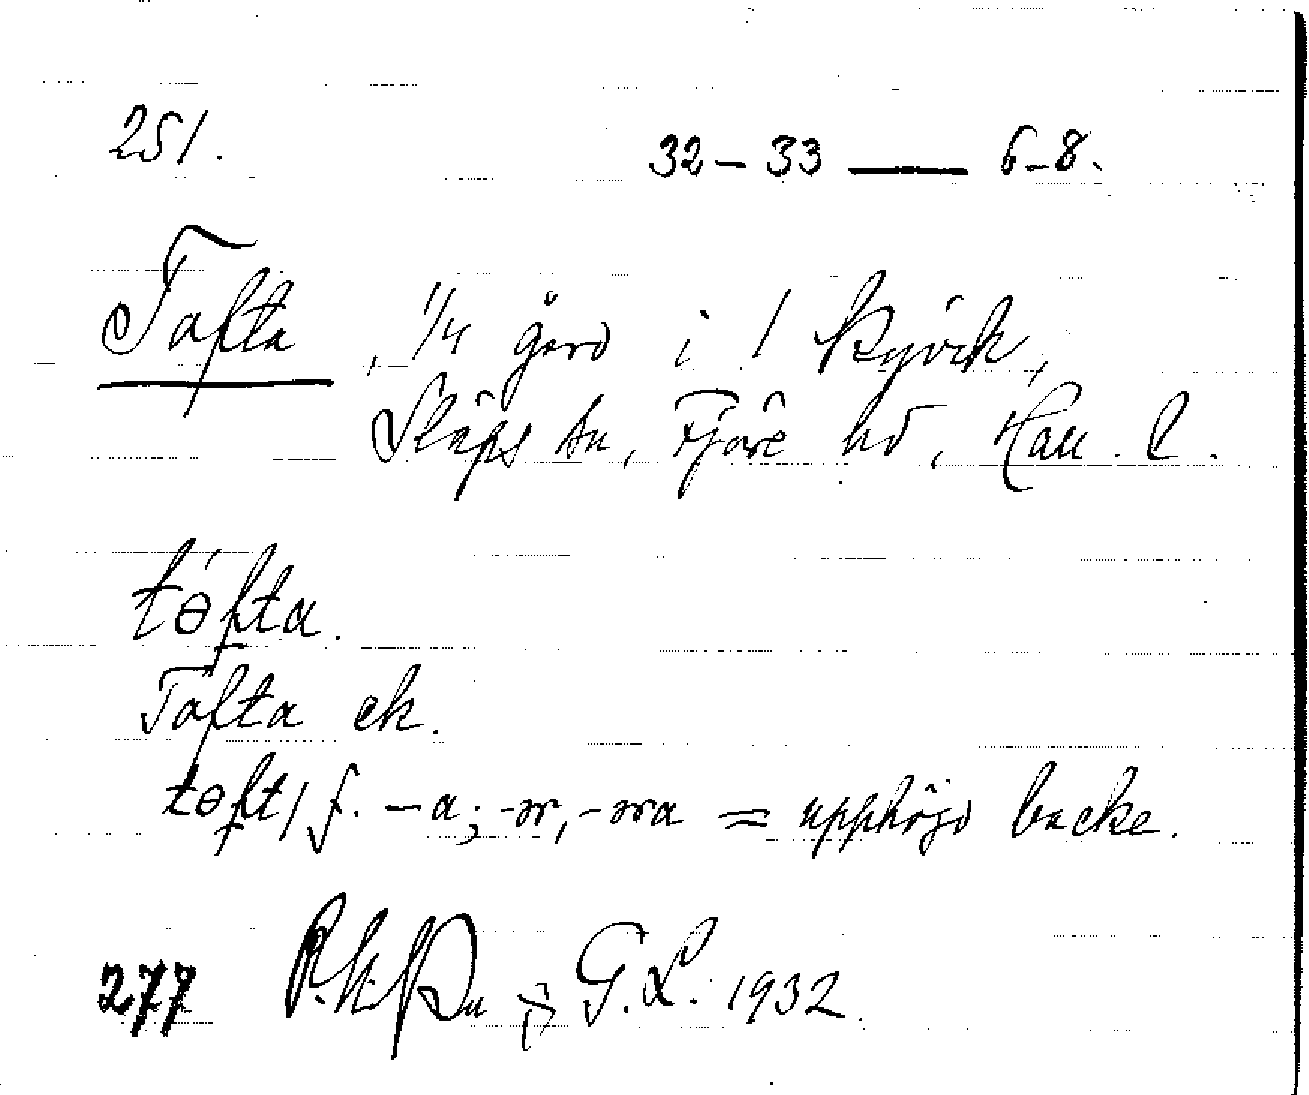 251.
32 – 33 — 6–8.
Tofta, 1/4 gård i 1 Kyvik,
Släps sn, Fjäre hd, Hall. l.
tɵ́fta.
Tofta ek.
tɵft/ f. –a; -ər, -əra = upphöjd backe.
277 G.L. 1932.